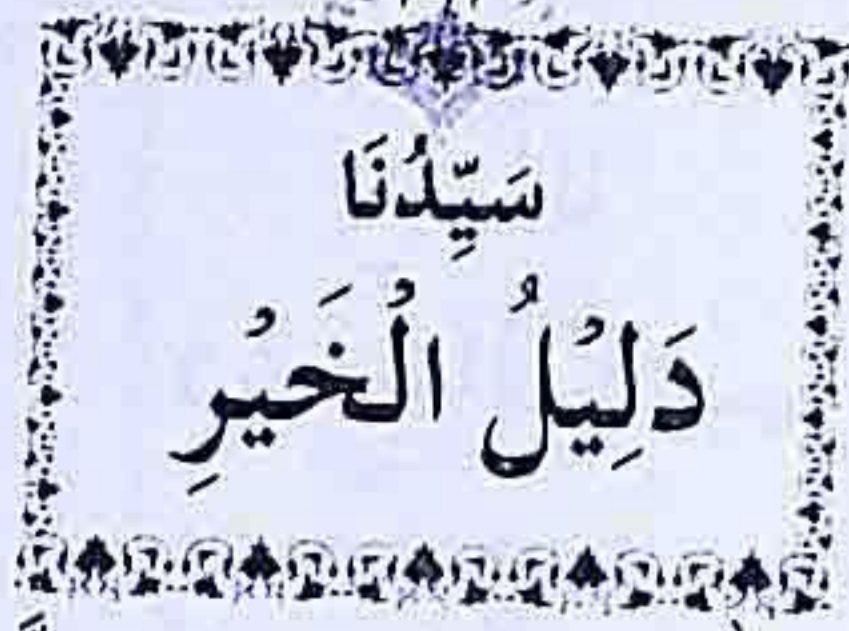 سَيِّدُنَا
دَلِيْلُ الْخَيْرِ